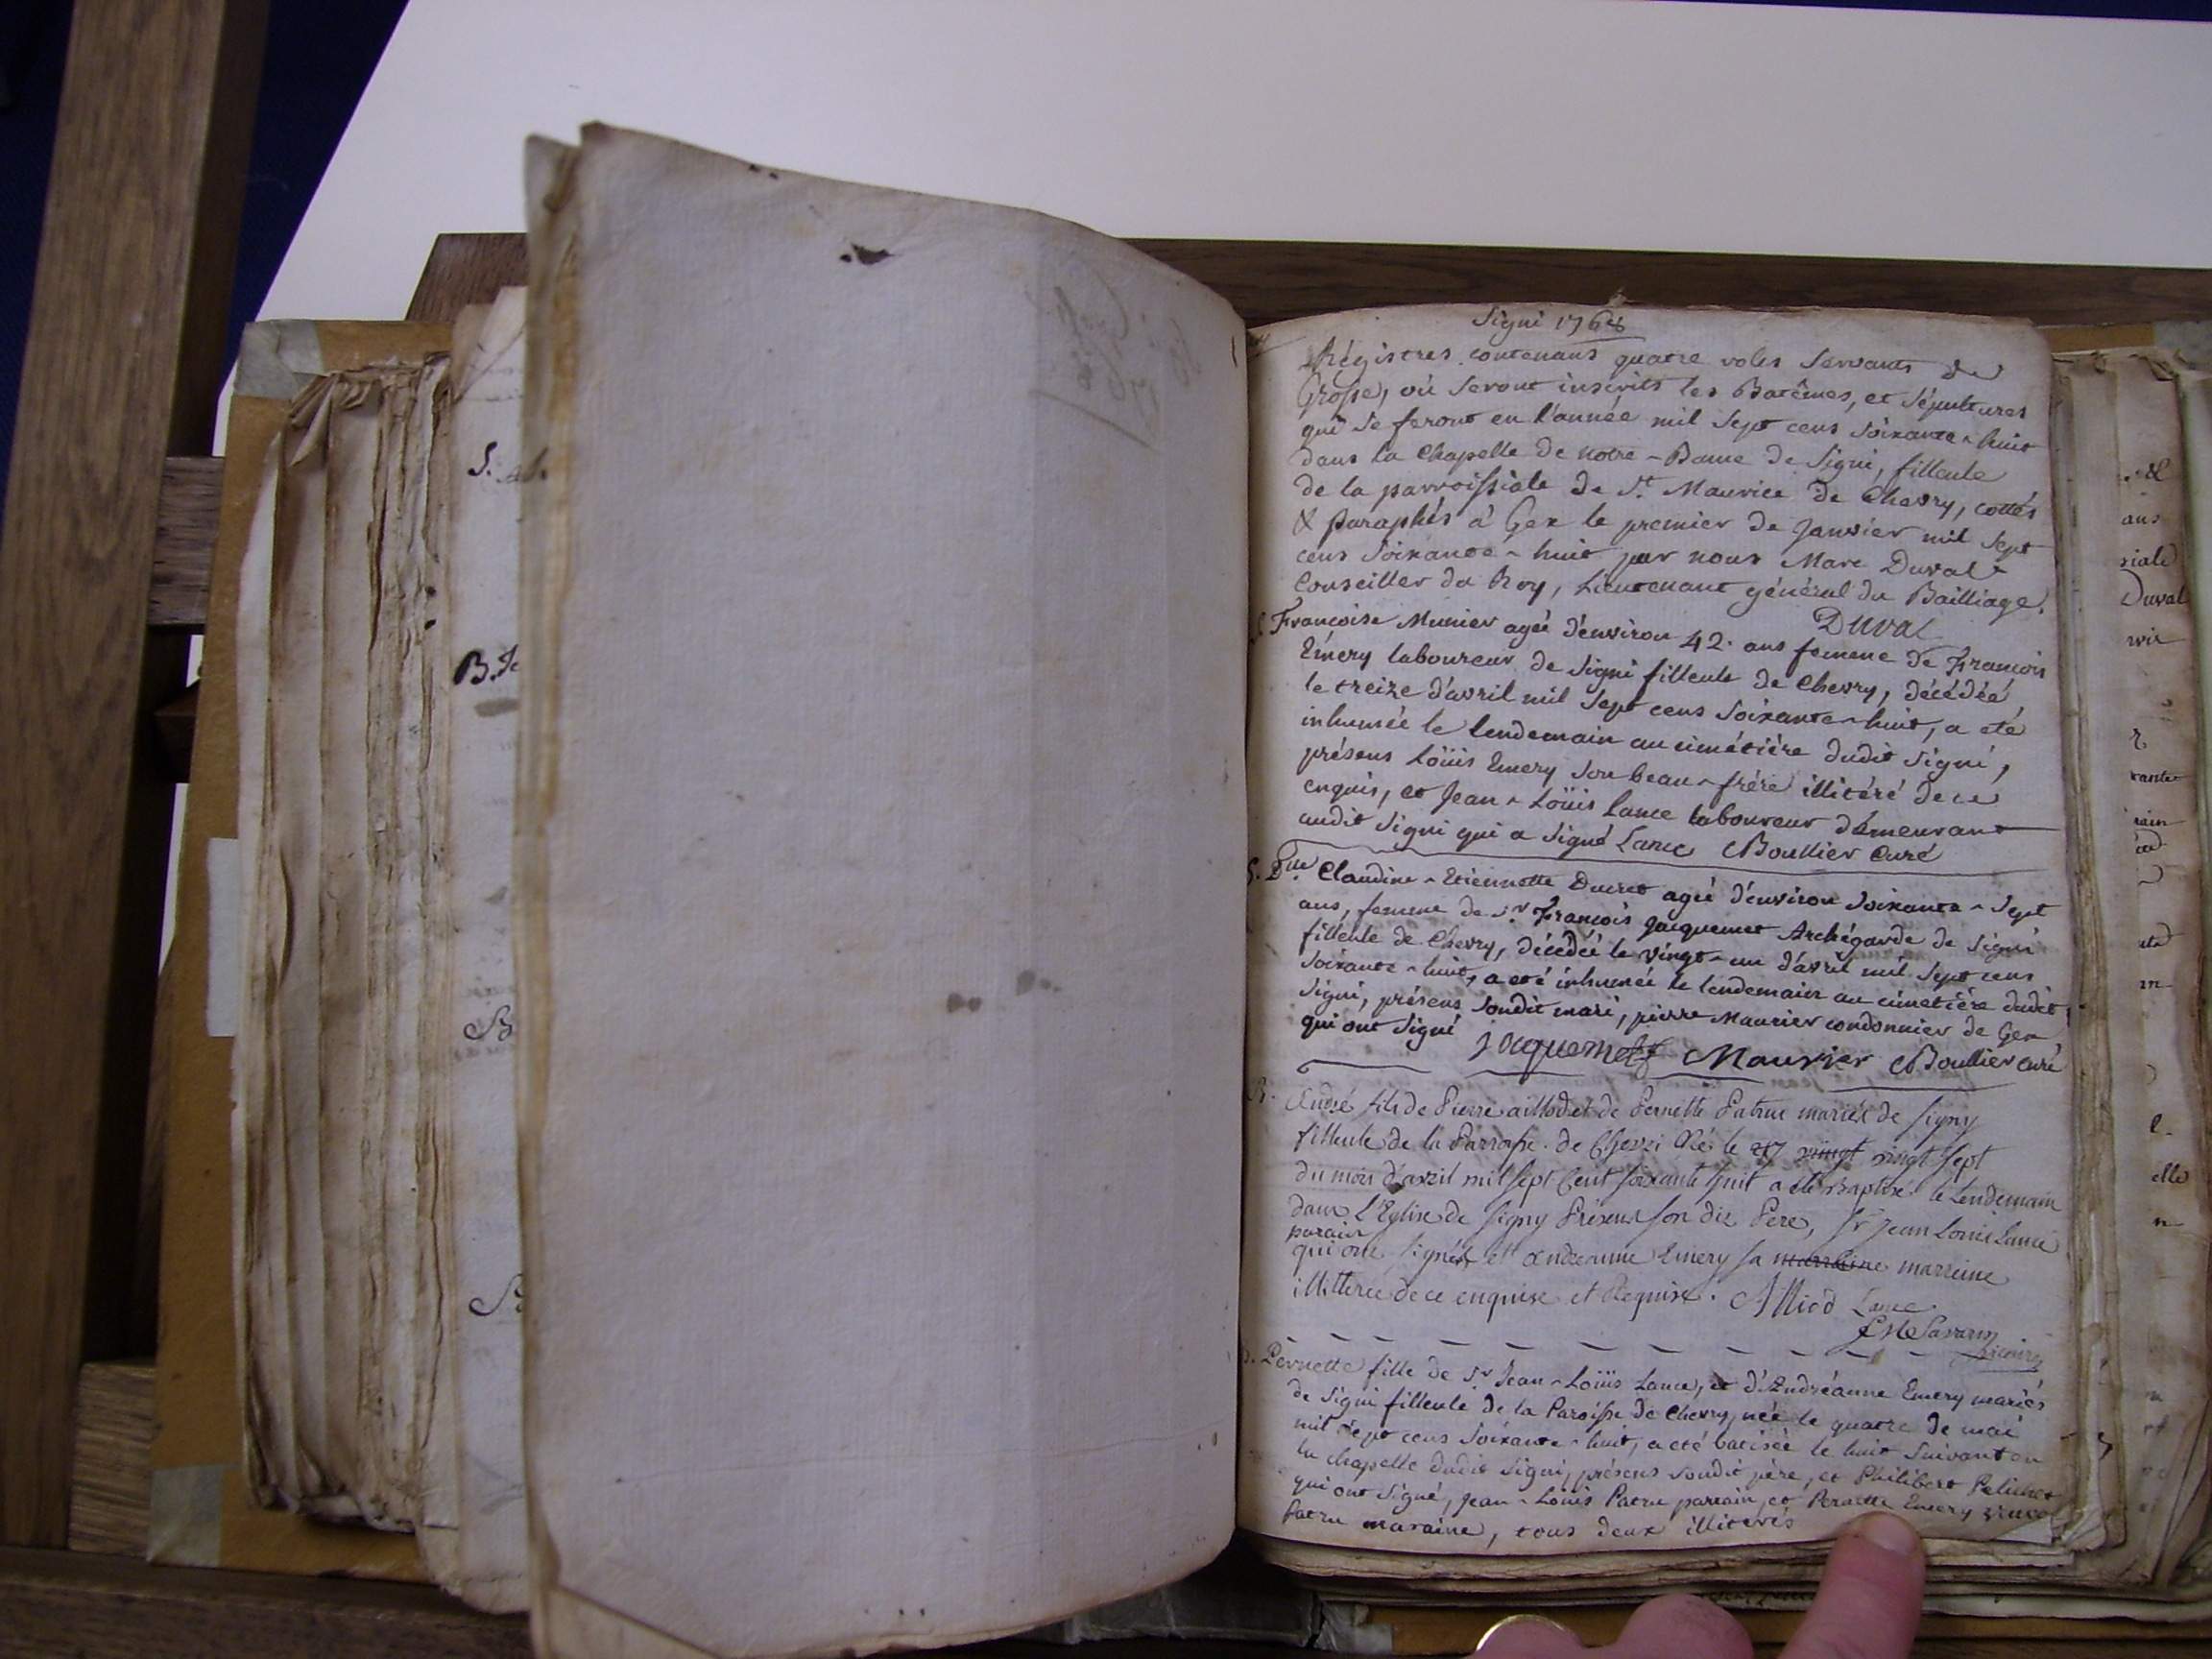 Signi 1768
Régistres contenans quatre roles servants de
Grosse, où seront inscrits les Batêmes, et sépultures
qui se feront en l'année mil sept cens soixante-huit
dans la chapelle de notre-Dame de Signi, filleule
de la parroissiale de St. Maurice de Chevry, cottés
& paraphés à Gex le premier de Janvier mil sept
cens soixante-huit par nous Marc Duval
Conseiller du Roy, Lieutenant général du Bailliage.
Duval
S. Francoise Munier ageé d'environ 42. ans femme de Francois
Emery laboureur de Signi filleule de Chevry, décédéé
le treize d'avril mil sept cens soixante-huit, a eté
inhumée le lendemain au cimétière dudit Signi,
présens Loüis Emery son beau-frére illitéré de ce
enquis, et Jean-Loüis Lance laboureur démeurant
audit Signi qui a signé Lance Boullier Curé
S. Dlle Claudine-Etiennette Ducret ageé d'environ soixante-sept
ans, femme de Sr François Jacquemet Archégarde de Signi
filleule de Chevry, décédéé le vingt-un d'avril mil sept cens
soixante-huit, a eté inhumée le lendemain au cimetière dudit
Signi, présens sondit mari, pierre Maurier cordonnier de Gex
qui ont signé Jacquemet Maurier Boullier curé
B. André fils de Pierre aillod et de Pernette Patrue mariés de Signy
filleule de la Parroisse de Chevri Né le 27 vingt vingt sept
du mois d'avril mil sept Cent soixante huit a été Baptisé le Lendemain
dans L'Eglise de Signy Présens son dit Pere, Sr Jean Louis Lance
parain
qui ont signés et Andreanne Emery sa marraine marreine
illitterée de ce enquise et Requise. Alliod Lance
Savarin
vicaire
B. Pernette fille de Sr Jean-Loüis Lance, et d'Andréanne Emery mariés
de Signi filleule de la Paroisse de Chevry, née le quatre de mai
mil sept cens soixante-huit, a eté batisée le huit suivant en
la chapelle dudit Signi, présens sondit père, et Philibert Pelichet
qui ont signé, Jean-Louis Patru parrain, et Pernette Emery
Patru maraine, tous deux illiterés